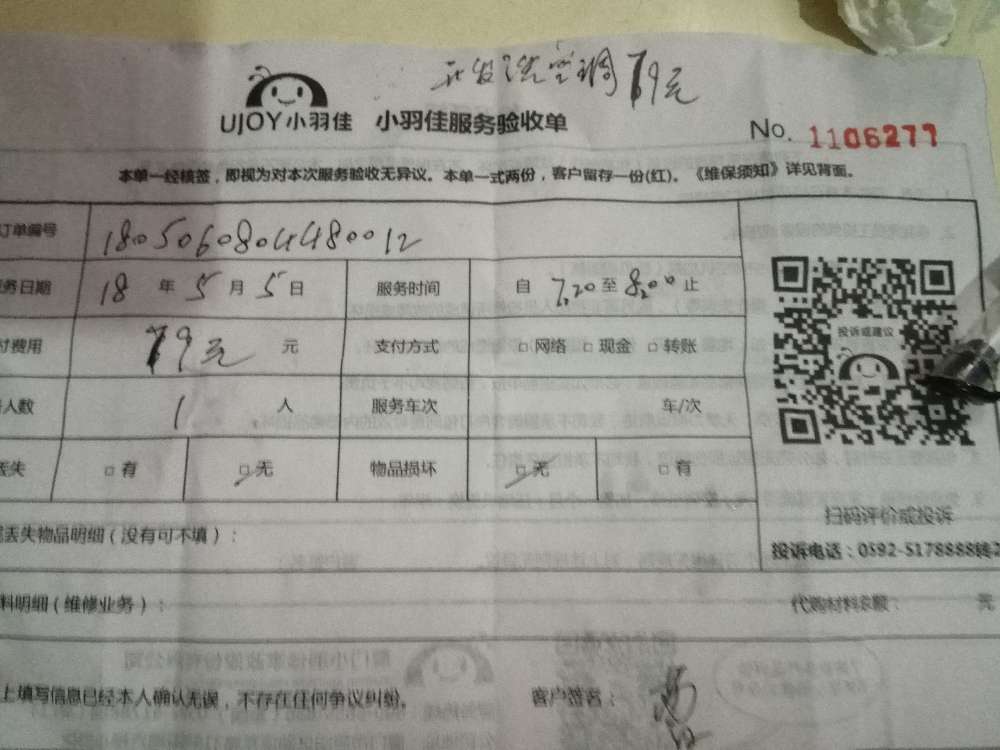 开发洗空调79元
UJOY小羽佳 小羽佳服务验收单
No. 1106277
本单一经核签，即视为对本次服务验收无异议。本单一式两份，客户留存一份(红)。《维保须知》详见背面。
订单编号 1805060804480012
务日期 18 年 5 月 5 日 服务时间 自 7.20 至 8.00 止
付费用 79元 元 支付方式 □网络 □现金 □转账
人数 1 人 服务车次 车/次
丢失 □有 □无 物品损坏 □无 □有
投诉或建议
扫码评价或投诉
投诉电话：0592-5178888转2
丢失物品明细（没有可不填）：
料明细（维修业务）： 代购材料余额： 元
上填写信息已经本人确认无误，不存在任何争议纠纷。 客户签名：